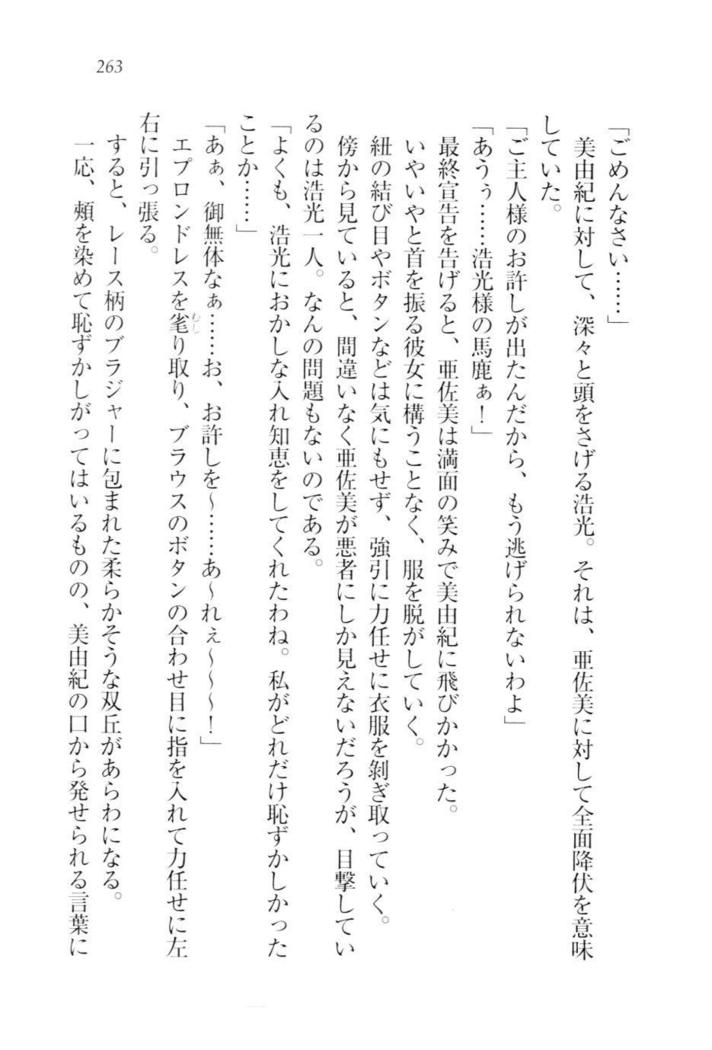 263
「ごめんなさい……」
　美由紀に対して、深々と頭をさげる浩光。それは、亜佐美に対して全面降伏を意味
していた。
「ご主人様のお許しが出たんだから、もう逃げられないわよ」
「あうぅ……浩光様の馬鹿ぁ！」
　最終宣告を告げると、亜佐美は満面の笑みで美由紀に飛びかかった。
　いやいやと首を振る彼女に構うことなく、服を脱がしていく。
　紐の結び目やボタンなどは気にもせず、強引に力任せに衣服を剝ぎ取っていく。
　傍から見ていると、間違いなく亜佐美が悪者にしか見えないだろうが、目撃してい
るのは浩光一人。なんの問題もないのである。
「よくも、浩光におかしな入れ知恵をしてくれたわね。私がどれだけ恥ずかしかった
ことか……」
「あぁ、御無体なぁ……お、お許しを～……あ～れぇ～～～！」
　エプロンドレスを毟り取り、ブラウスのボタンの合わせ目に指を入れて力任せに左
右に引っ張る。
　すると、レース柄のブラジャーに包まれた柔らかそうな双丘があらわになる。
　一応、頰を染めて恥ずかしがってはいるものの、美由紀の口から発せられる言葉に